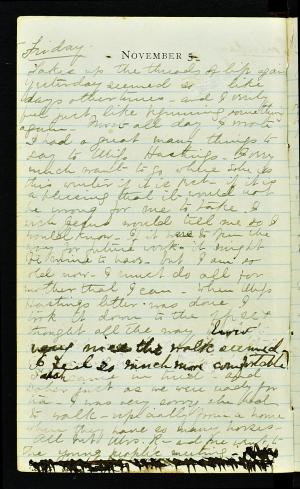 Friday.
November 5
Takes up the threads of life again
Yesterday seemed so like
days other times - and I don't
feel just like beginning something
again. Snow all day. I wrote
I had a great many things to
say to Miss Hastings. I very
much want to go where she is
this winter if it is right - if it is
a blessing that it would not
be wrong for me to take. I
wish Jesus would tell me so I
would know. But to
way for future work - it might
be mine to have. but I am so
old now - I must do all for
mother that I can. When Miss
Hastings letter was done I
took it down to the office
thought all the way how
very nice the walk seemed
to feel so much more comfortable
just as we were ready for
tea. I was very sorry she had
to walk especially from a home
where they have so many horses.
All but Mrs. R - and me went to
the young people's meeting.